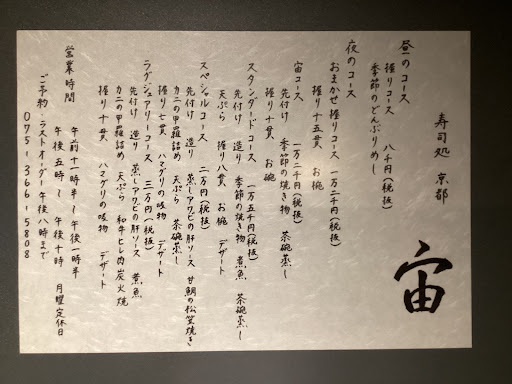 寿司処 京都
宙
昼のコース
握りコース 八千円(税抜)
季節のどんぶりめし
夜のコース
おまかせ握りコース 一万二千円(税抜)
握り十五貫 お椀
宙コース 一万二千円(税抜)
先付け 季節の焼き物 茶碗蒸し
握り八貫 お椀
スタンダードコース 一万五千円(税抜)
先付け 造り 季節の焼き物 煮魚 茶碗蒸し
天ぷら 握り八貫 お椀 デザート
スペシャルコース 二万円(税抜)
先付け 造り 蒸しアワビの肝ソース 甘鯛の松笠焼き
カニの甲羅詰め 天ぷら 茶碗蒸し
握り七貫 ハマグリの吸物 デザート
ラグジュアリーコース 三万円(税抜)
先付け 造り 蒸しアワビの肝ソース 煮魚
カニの甲羅詰め 天ぷら 和牛ヒレ肉炭火焼
握り十貫 ハマグリの吸物 デザート
営業時間
午前十一時半〜午後一時半
午後五時〜午後十時 月曜定休日
ご予約 ラストオーダー午後八時まで
075-366-5808